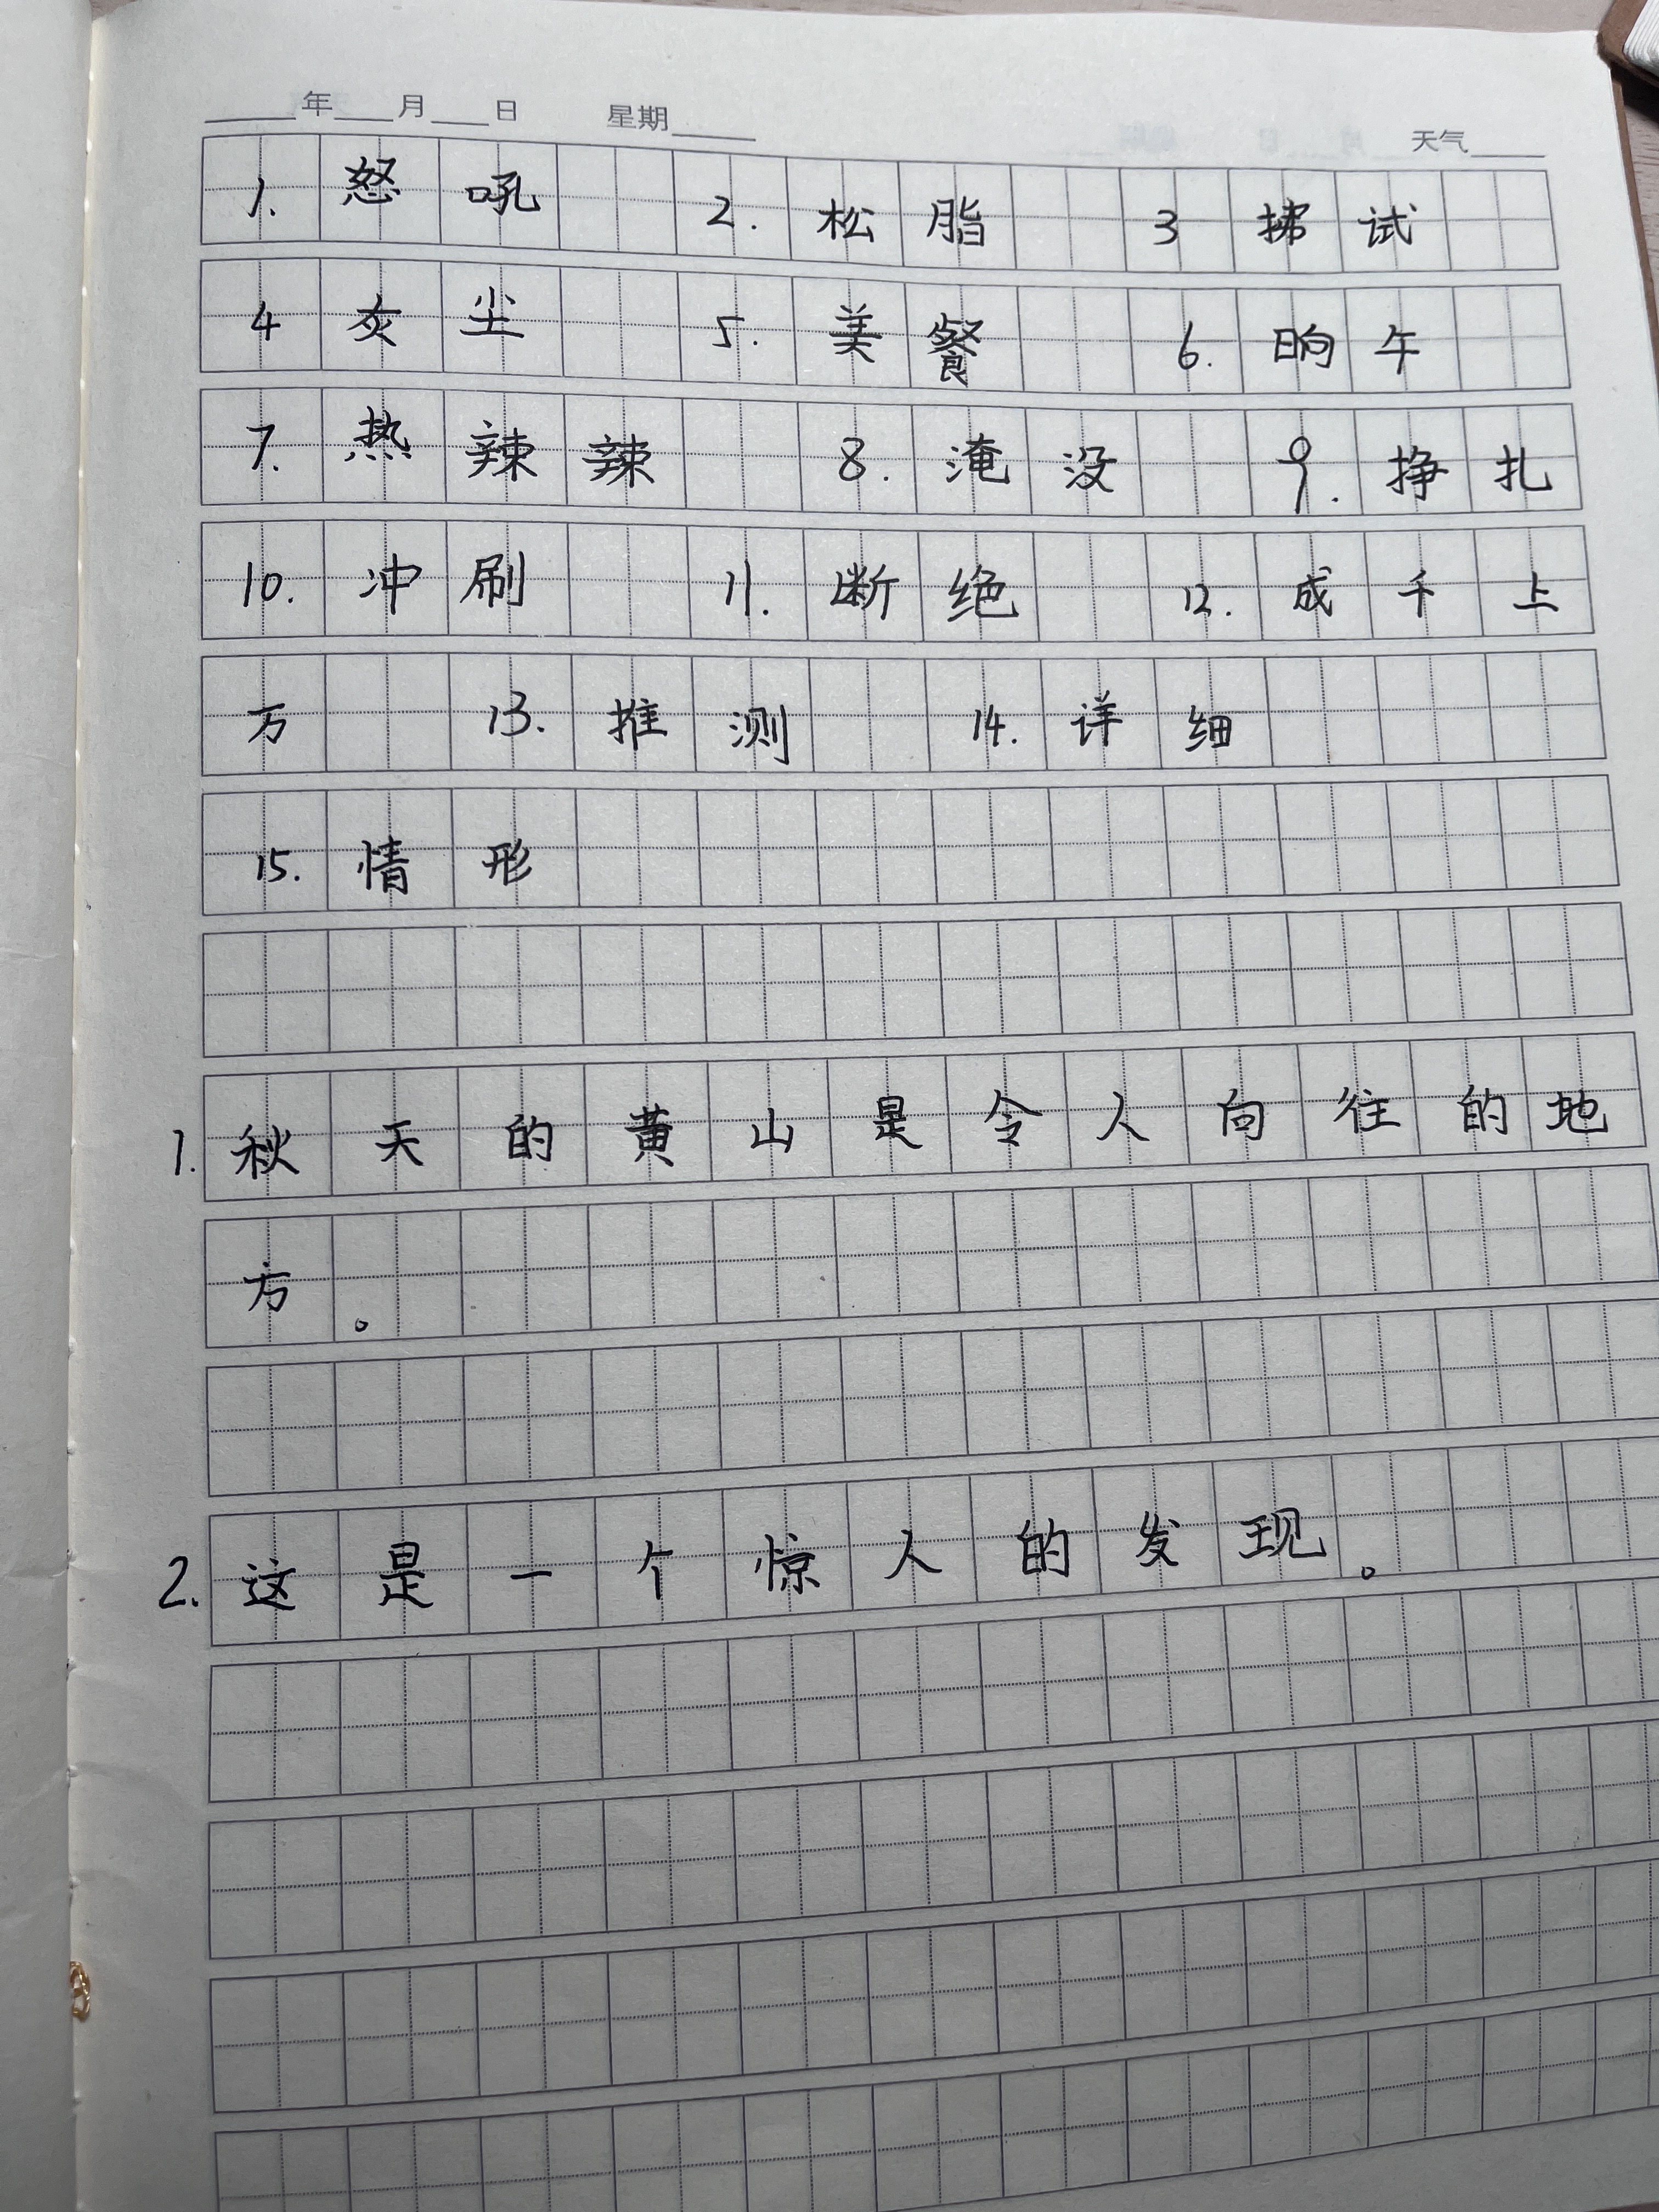 年 月 日 星期 天气
1. 怒吼 2. 松脂 3 拂试
4 灰尘 5. 美餐 6. 晌午
7. 热辣辣 8. 淹没 9. 挣扎
10. 冲刷 11. 断绝 12. 成千上
万 13. 推测 14. 详细
15. 情形
1. 秋天的黄山是令人向往的地
方。
2. 这是一个惊人的发现。